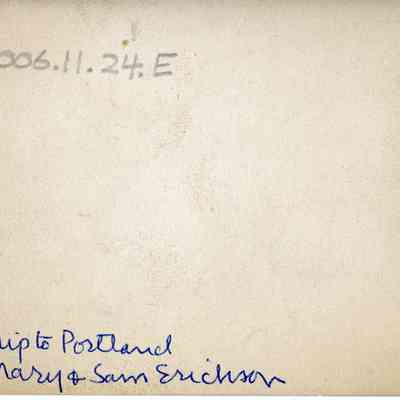 006.11.24.E
rip to Portland
Mary & Sam Erickson